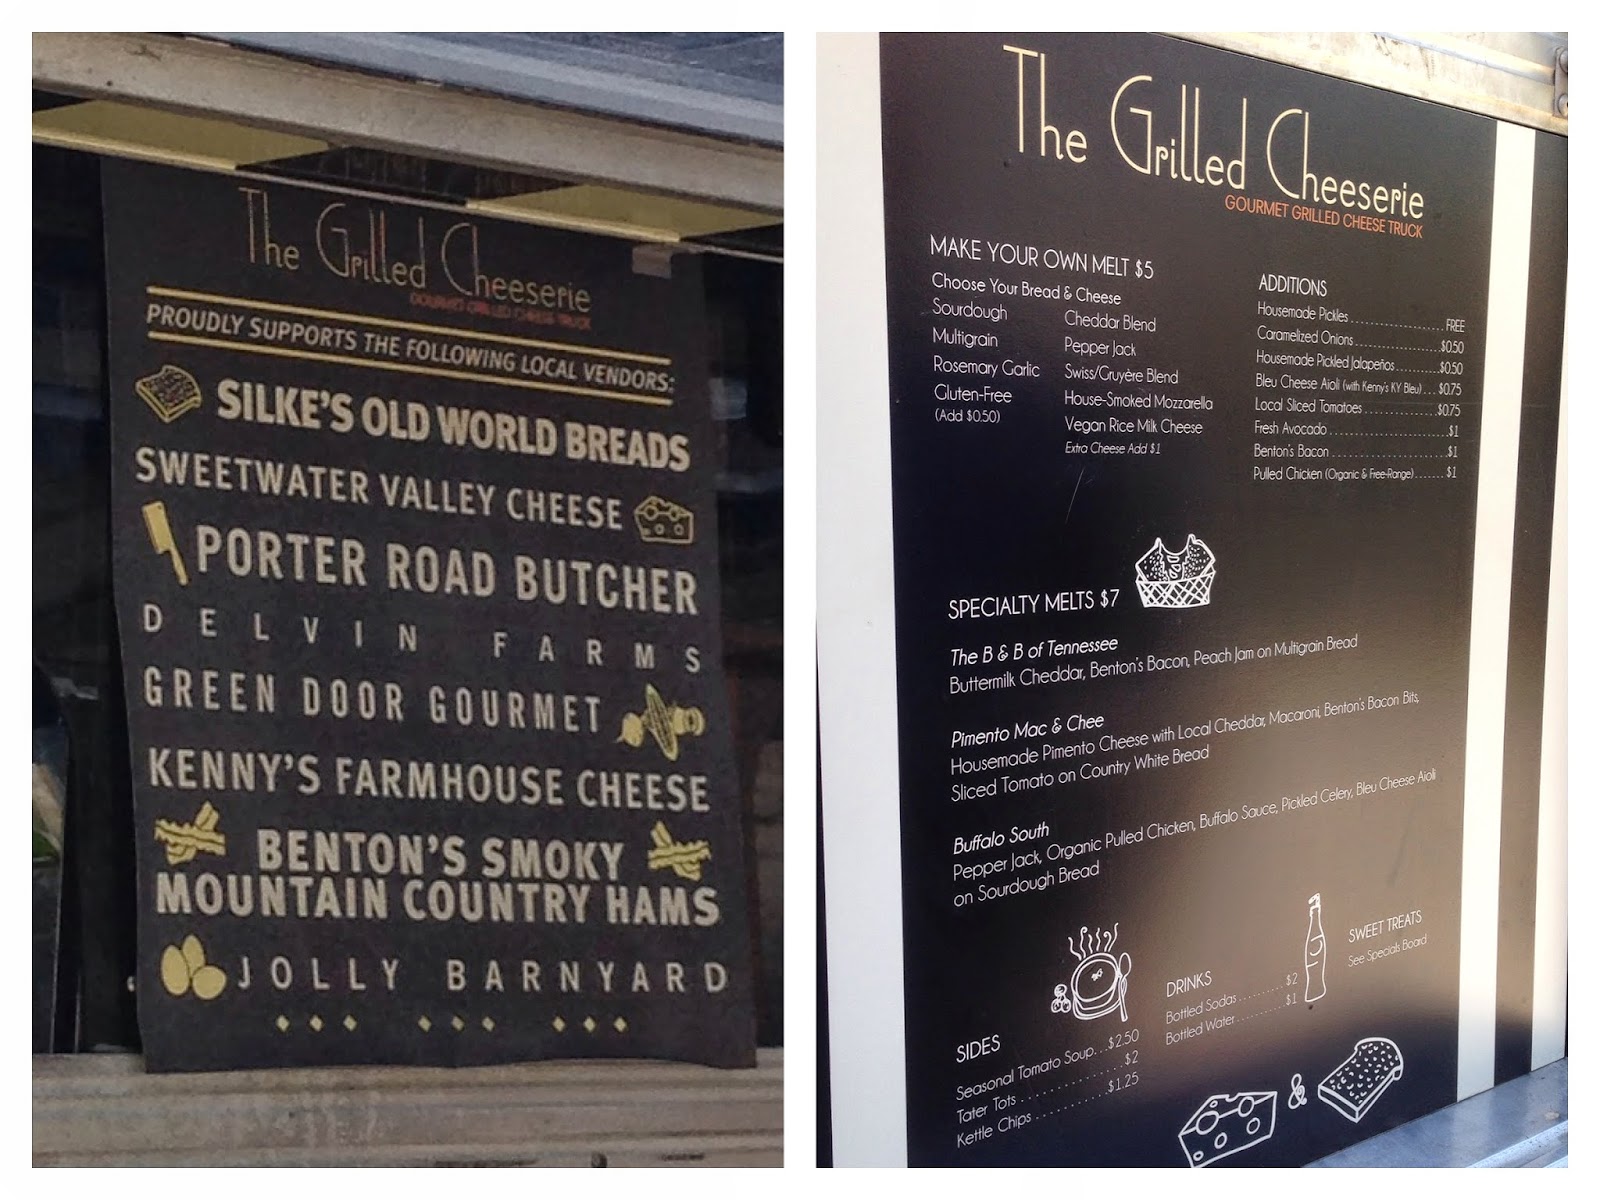 The Grilled Cheeserie
GOURMET GRILLED CHEESE TRUCK
PROUDLY SUPPORTS THE FOLLOWING LOCAL VENDORS:
SILKE'S OLD WORLD BREADS
SWEETWATER VALLEY CHEESE
PORTER ROAD BUTCHER
DELVIN FARMS
GREEN DOOR GOURMET
KENNY'S FARMHOUSE CHEESE
BENTON'S SMOKY
MOUNTAIN COUNTRY HAMS
JOLLY BARNYARD
The Grilled Cheeserie
GOURMET GRILLED CHEESE TRUCK
MAKE YOUR OWN MELT $5
Choose Your Bread & Cheese
Sourdough
Multigrain
Rosemary Garlic
Gluten-Free
(Add $0.50)
Cheddar Blend
Pepper Jack
Swiss/Gruyère Blend
House-Smoked Mozzarella
Vegan Rice Milk Cheese
Extra Cheese Add $1
ADDITIONS
Housemade Pickles.....................FREE
Caramelized Onions....................$0.50
Housemade Pickled Jalapeños.........$0.50
Bleu Cheese Aioli (with Kenny's KY Bleu)...$0.75
Local Sliced Tomatoes.................$0.75
Fresh Avocado.........................$1
Benton's Bacon........................$1
Pulled Chicken (Organic & Free-Range).......$1
SPECIALTY MELTS $7
The B & B of Tennessee
Buttermilk Cheddar, Benton's Bacon, Peach Jam on Multigrain Bread
Pimento Mac & Chee
Housemade Pimento Cheese with Local Cheddar, Macaroni, Benton's Bacon Bits,
Sliced Tomato on Country White Bread
Buffalo South
Pepper Jack, Organic Pulled Chicken, Buffalo Sauce, Pickled Celery, Bleu Cheese Aioli
on Sourdough Bread
SIDES
Seasonal Tomato Soup...$2.50
Tater Tots..............$2
Kettle Chips..........$1.25
DRINKS
Bottled Sodas.........$2
Bottled Water.........$1
SWEET TREATS
See Specials Board
&